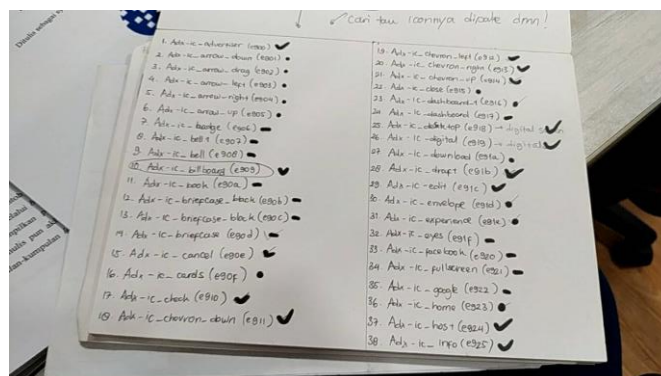 cari tau iconnya dipake dmn!
Ditulis sebagai
1. Adx-ic_advertiser (e900)
2. Adx-ic_arrow_down (e901)
3. Adx-ic_arrow_drag (e902)
4. Adx-ic_arrow_left (e903)
5. Adx-ic_arrow-right (e904)
6. Adx-ic_arrow_up (e905)
7. Adx-ic_badge (e906)
8. Adx-ic_bell1 (e907)
9. Adx-ic_bell (e908)
10. Adx-ic_billboard (e909)
11. Adx-ic_book (e90a)
12. Adx-ic_briefcase_black (e90b)
13. Adx-ic_briefcase-block (e90c)
14. Adx-ic_briefcase (e90d)
15. Adx-ic_cancel (e90e)
16. Adx-ic_cards (e90f)
17. Adx-ic_check (e910)
18. Adx-ic_chevron_down (e911)
19. Adx-ic_chevron_left (e912)
20. Adx-ic_chevron-right (e913)
21. Adx-ic_chevron-up (e914)
22. Adx-ic_close (e915)
23. Adx-ic_dashboard-1 (e916)
24. Adx-ic_dashboard (e917)
25. Adx-ic_desktop (e918) → digital
26. Adx-ic_digital (e919) → digital
27. Adx-ic_download (e91a)
28. Adx-ic_draft (e91b)
29. Adx-ic_edit (e91c)
30. Adx-ic_envelope (e91d)
31. Adx-ic_experience (e91e)
32. Adx-ic_eyes (e91f)
33. Adx-ic_facebook (e920)
34. Adx-ic_fullscreen (e921)
35. Adx-ic_google (e922)
36. Adx-ic_home (e923)
37. Adx-ic_host (e924)
38. Adx-ic_info (e925)